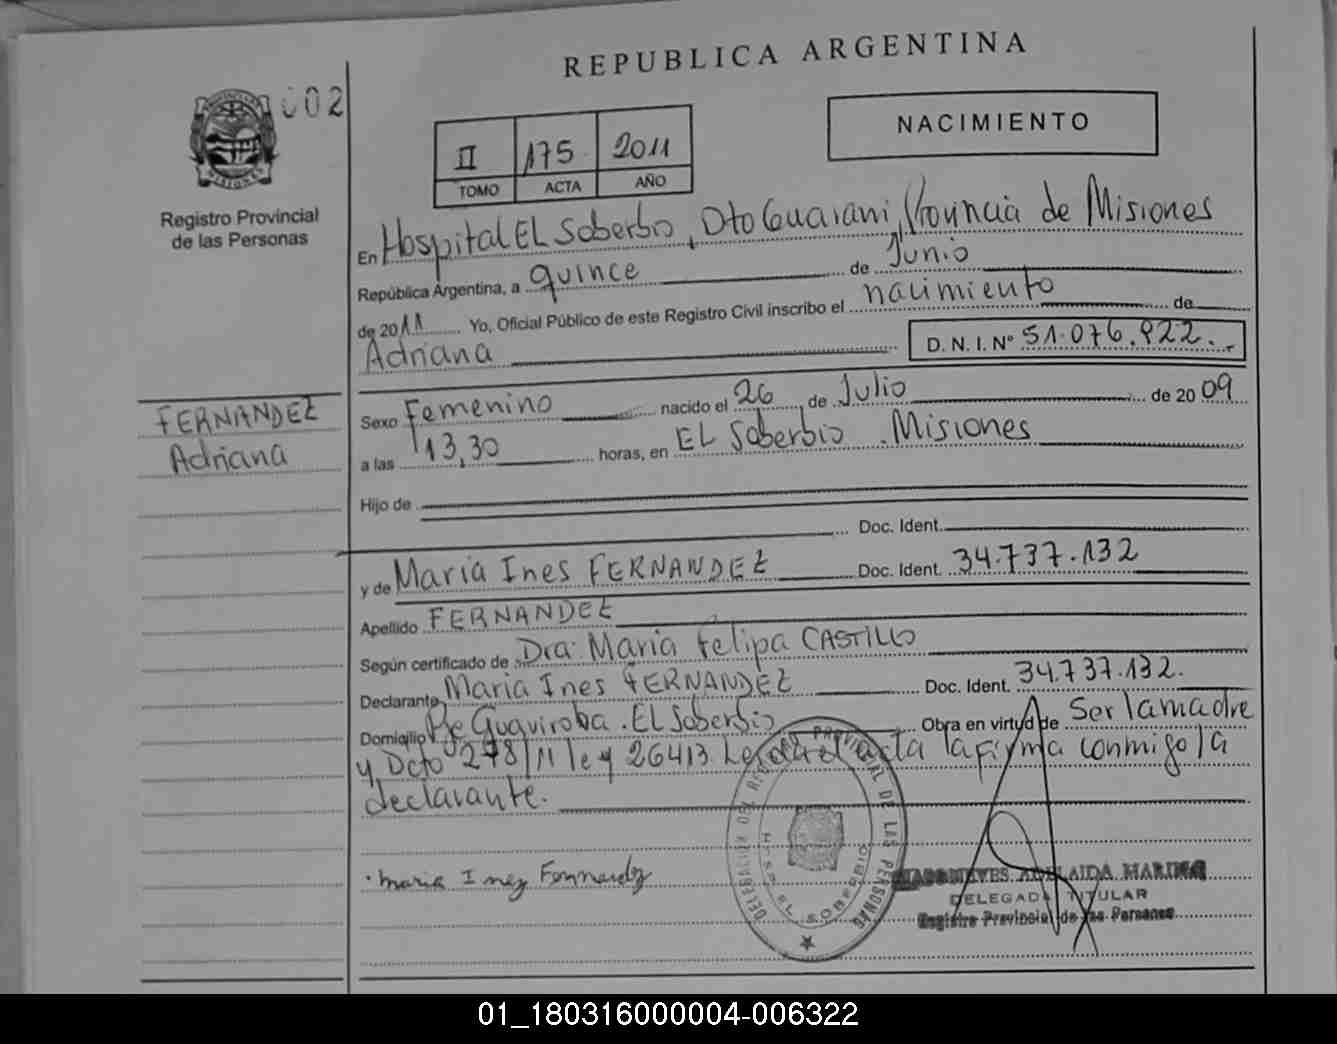 REPUBLICA ARGENTINA
002
NACIMIENTO
II 175 2011
TOMO ACTA AÑO
Registro Provincial
de las Personas
En Hospital EL Soberbio, Dto Guarani, Provincia de Misiones
República Argentina, a quince de Junio
de 2011 Yo, Oficial Público de este Registro Civil inscribo el nacimiento de
Adriana D. N. I. Nº 51.076.922.
FERNANDEZ
Adriana
Sexo Femenino nacido el 26 de Julio de 2009
a las 13,30 horas, en EL Soberbio Misiones
Hijo de
Doc. Ident.
y de Maria Ines FERNANDEZ Doc. Ident. 34.737.132
Apellido FERNANDEZ
Según certificado de Dra. Maria Felipa CASTILLO
Declarante Maria Ines FERNANDEZ Doc. Ident. 34.737.132.
Domicilio Pje Guaviroba. EL Soberbio Obra en virtud de Ser la madre
y Dcto 278/11 ley 26413. Leida el acta la firma conmigo la
declarante.
Maria Inez Fernandez
DELEGACION DEL REGISTRO PROVINCIAL DE LAS PERSONAS
HOSP. EL SOBERBIO
ADELAIDA MARINA
DELEGADA TITULAR
Registro Provincial de las Personas
01_180316000004-006322